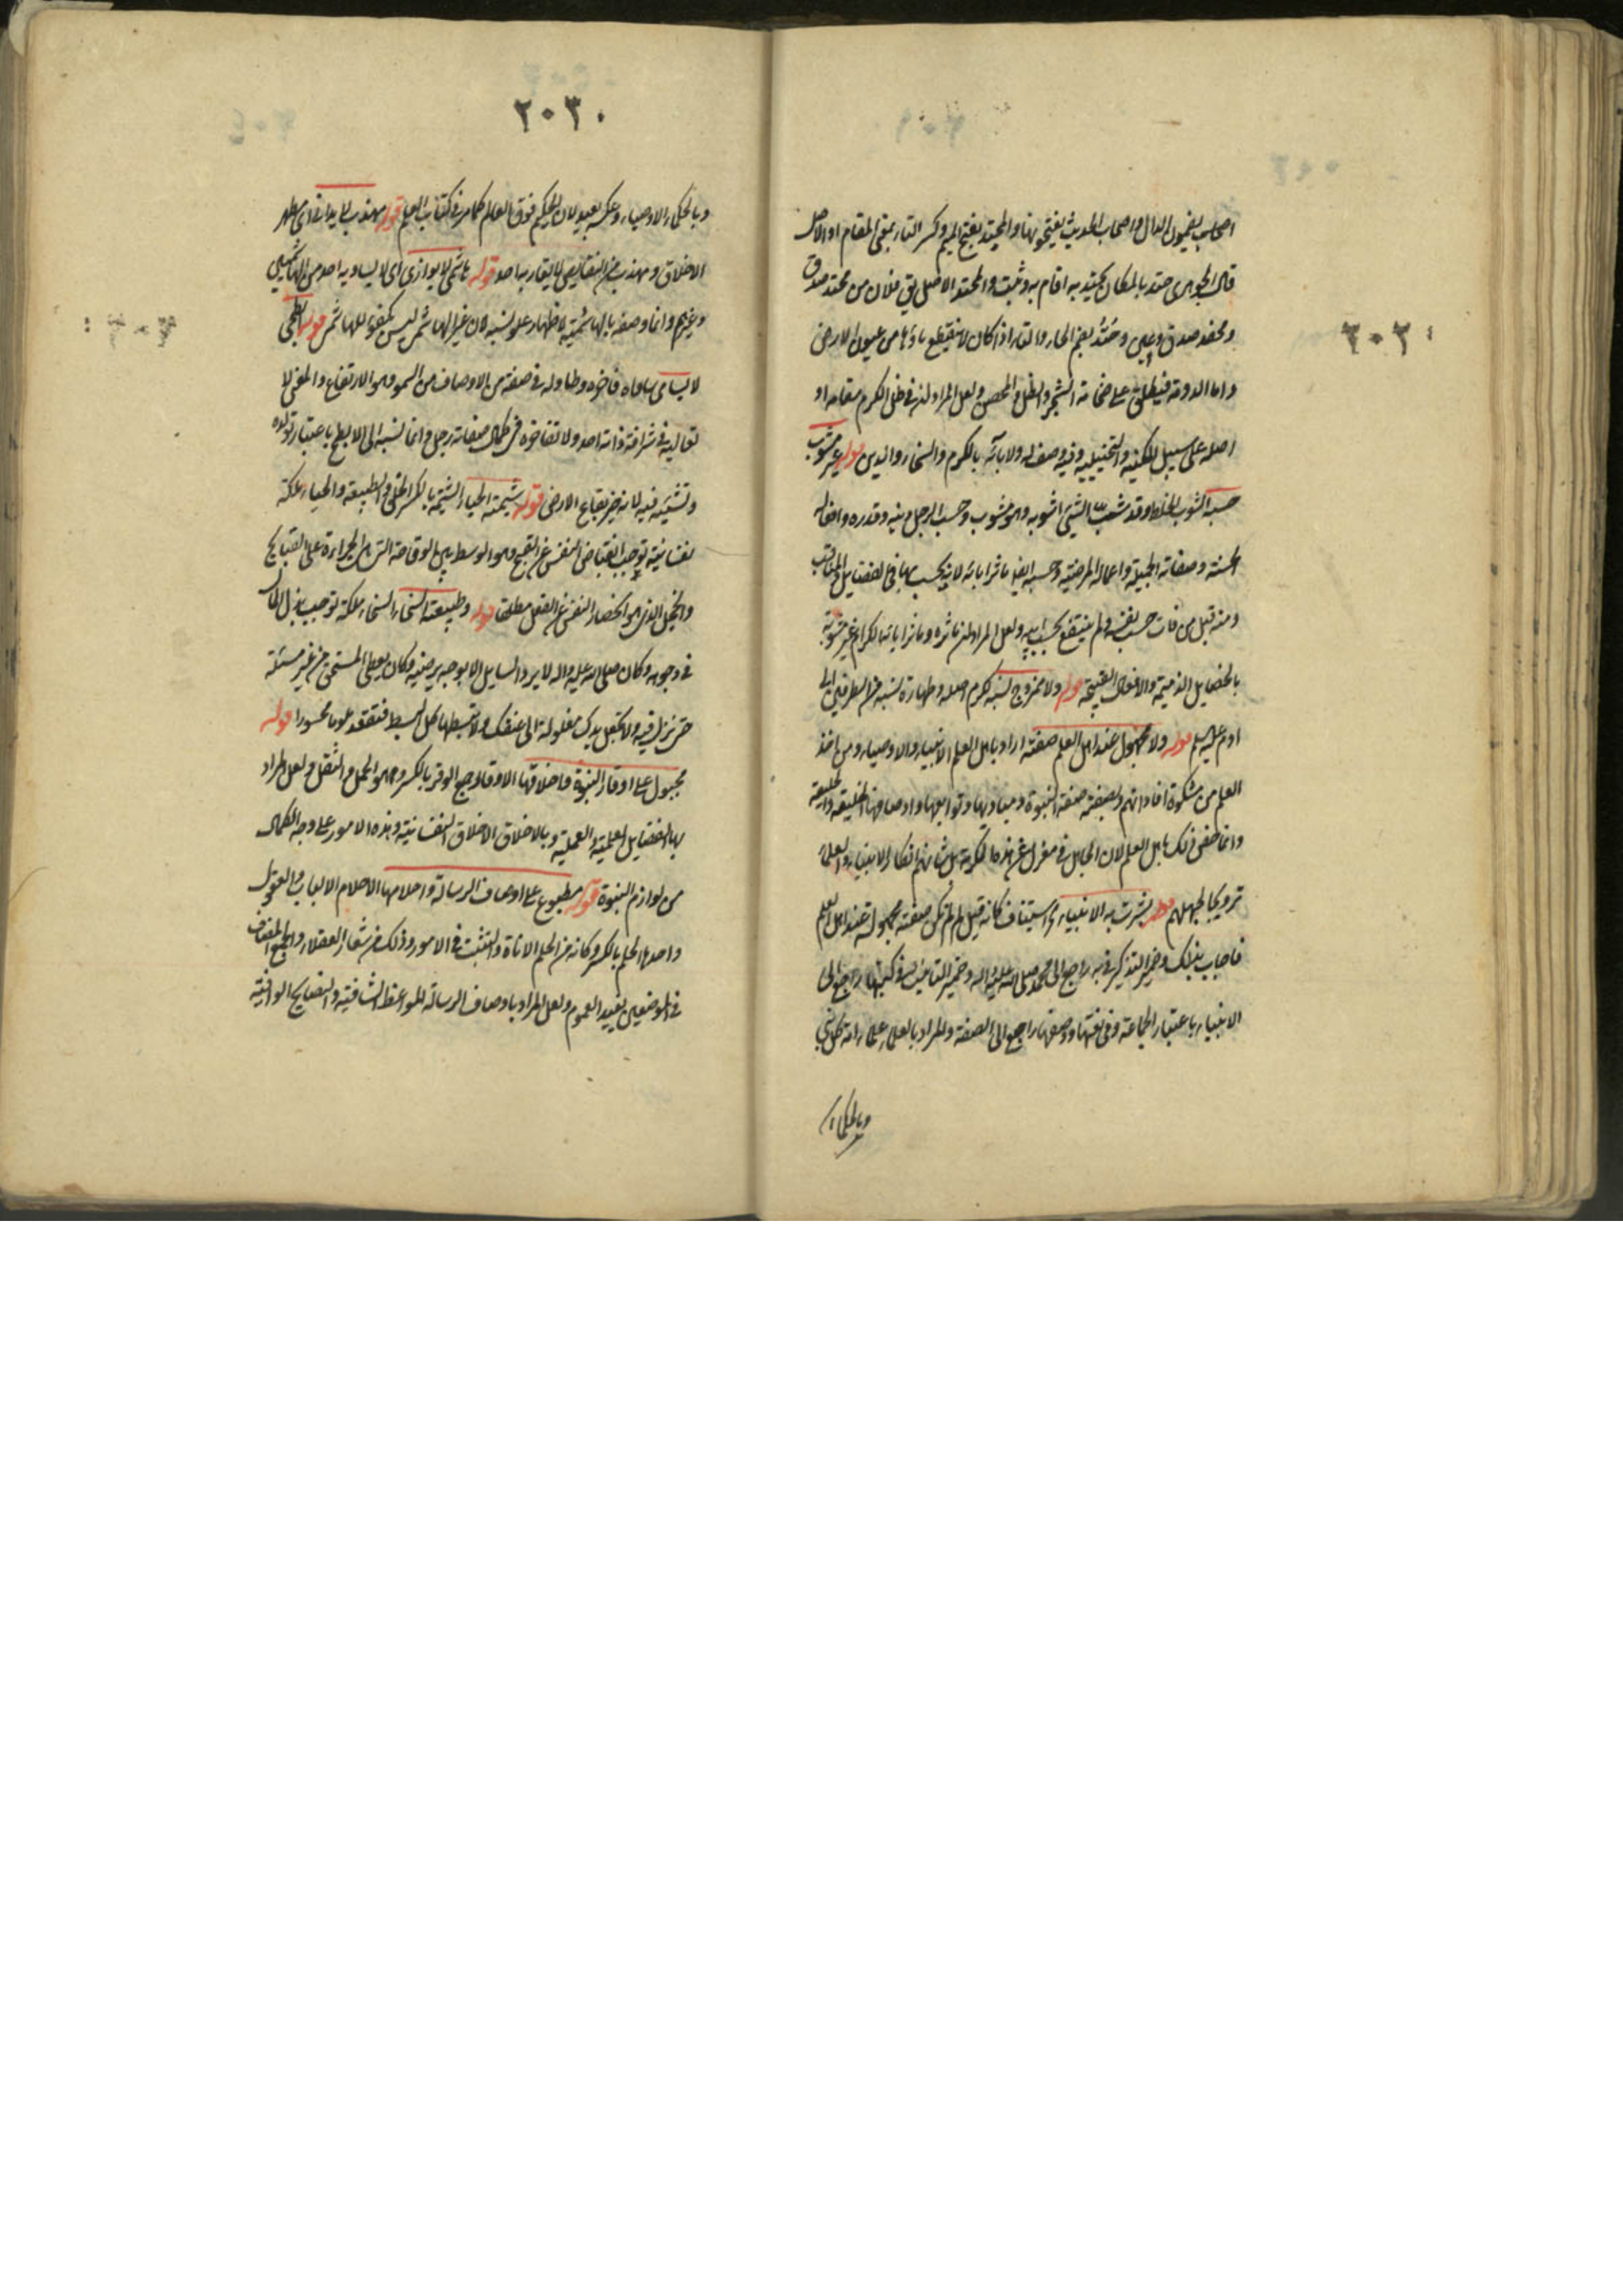 ٢٠٢
اصحاب يضمون الدال واصحاب الحديث يفتحونها والمحتد بفتح الميم وكسر التاء بمعنى المقام او الاصل
قال الجوهرى حتد بالمكان يحتد به اقام به وثبت والمحتد الاصل يق فلان من محتد صدق
ومحفد صدق وعين وحتد بضم الحاء والتاء اذا كان لا ينقطع ماؤها من عيون الارض
واما الدومة فيطلق على ضخامة الشجر والظل والحصن ولعل المراد انه في ظل الكرم مقامه او
اصله على سبيل المكنية والتخييلية وفيه وصف له ولآبائه بالكرم والسخاء والدين قوله غير مشوب
حسبه الشوب الخلط وقد شبت الشيء اشوبه وهو مشوب وحسب الرجل دينه وقدره وافعاله
الحسنة وصفاته الجميلة واعماله المرضية وحسبه ايضا مآثر ابائه لانه يحسب بها في الفضايل والمناقب
ومنه قيل من فات حسب نفسه لم ينتفع بحسب ابيه ولعل المراد ان مآثره ومآثر ابائه الكرام غير مشوبة
بالخصايل الذميمة والافعال القبيحة قوله ولا ممزوج نسبه كرم اصله وطهارة نسبه من الطرفين الى
ادم عليه السلم قوله ولا مجهول عند اهل العلم صفته اراد باهل العلم الانبياء والاوصياء ومن اخذ
العلم من مشكوة افاداتهم وبصفته صفة النبوة ومباديها وتوابعها واوصافها الخليقة والخلقية
وانما خص ذلك باهل العلم لان الجاهل في معزل عن هذه المكرمة بل شانهم انكار الانبياء والعلماء
ترويجا لجهلهم قوله بشرت به الانبياء استيناف كانه قيل لم لم تكن صفته مجهولة عند اهل العلم
فاجاب بذلك وضمير التذكير في به راجع الى محمد صلى الله عليه واله وضمير التانيث في كتبها راجع الى
الانبياء باعتبار الجماعة وفى نعتها ووصفها راجع الى الصفة والمراد بالعلماء علماء امة كل نبي
وبالحكماء
٢٠٣
وبالحكماء الاوصياء وعكسه بعيد لان الحكيم فوق العالم كما مر في كتاب العلم قوله مهذب لا يدانى اى مطهر
الاخلاق ومهذب من النقايص لا يقاربه احد قوله هاشمي لا يوازى اى لا يساويه احد من الهاشميين
وغيرهم وانما وصفه بالهاشمية لاظهار علو نسبه لان غير الهاشمي ليس بكفو للهاشمي قوله ابطحي
لا يسامى ساماه فاخره وطاوله في صفة من الاوصاف من السمو وهو الارتفاع والمعنى لا
يعاليه في شرافة ذاته احد ولا تفاخره في كمال صفاته رجل وانما نسبه الى الابطح باعتبار تولده
ونشئه فيه لانه خير بقاع الارض قوله شيمته الحياء الشيمة بالكسر الخلق والطبيعة والحياء ملكة
نفسانية توجب انقباض النفس عن القبيح وهو الوسط بين الوقاحة التي هى الجراءة على القبايح
والخجل الذى هو انحصار النفس عن الفعل مطلقا قوله وطبيعته السخاء السخاء ملكة توجب بذل المال
في وجوهه وكان صلى الله عليه واله لا يرد السايل الا بوجه يرضيه وكان يعطى المستحق من غير مسئلة
حتى نزل فيه ولا تجعل يدك مغلولة الى عنقك ولا تبسطها كل البسط فتقعد ملوما محسورا قوله
مجبول على اوقار النبوة واخلاقها الاوقار جمع الوقر بالكسر وهو الحمل والثقل ولعل المراد
بها الفضايل العلمية والعملية وبالاخلاق الاخلاق النفسانية وهذه الامور على وجه الكمال
من لوازم النبوة قوله مطبوع على اوصاف الرسالة واحلامها الاحلام الالباب والعقول
واحدها الحلم بالكسر وكانه من الحلم الاناة والتثبت في الامور وذلك من شعار العقلاء والجمع المضاف
في الموضعين يفيد العموم ولعل المراد باوصاف الرسالة المواعظ الشافية والنصايح الوافية